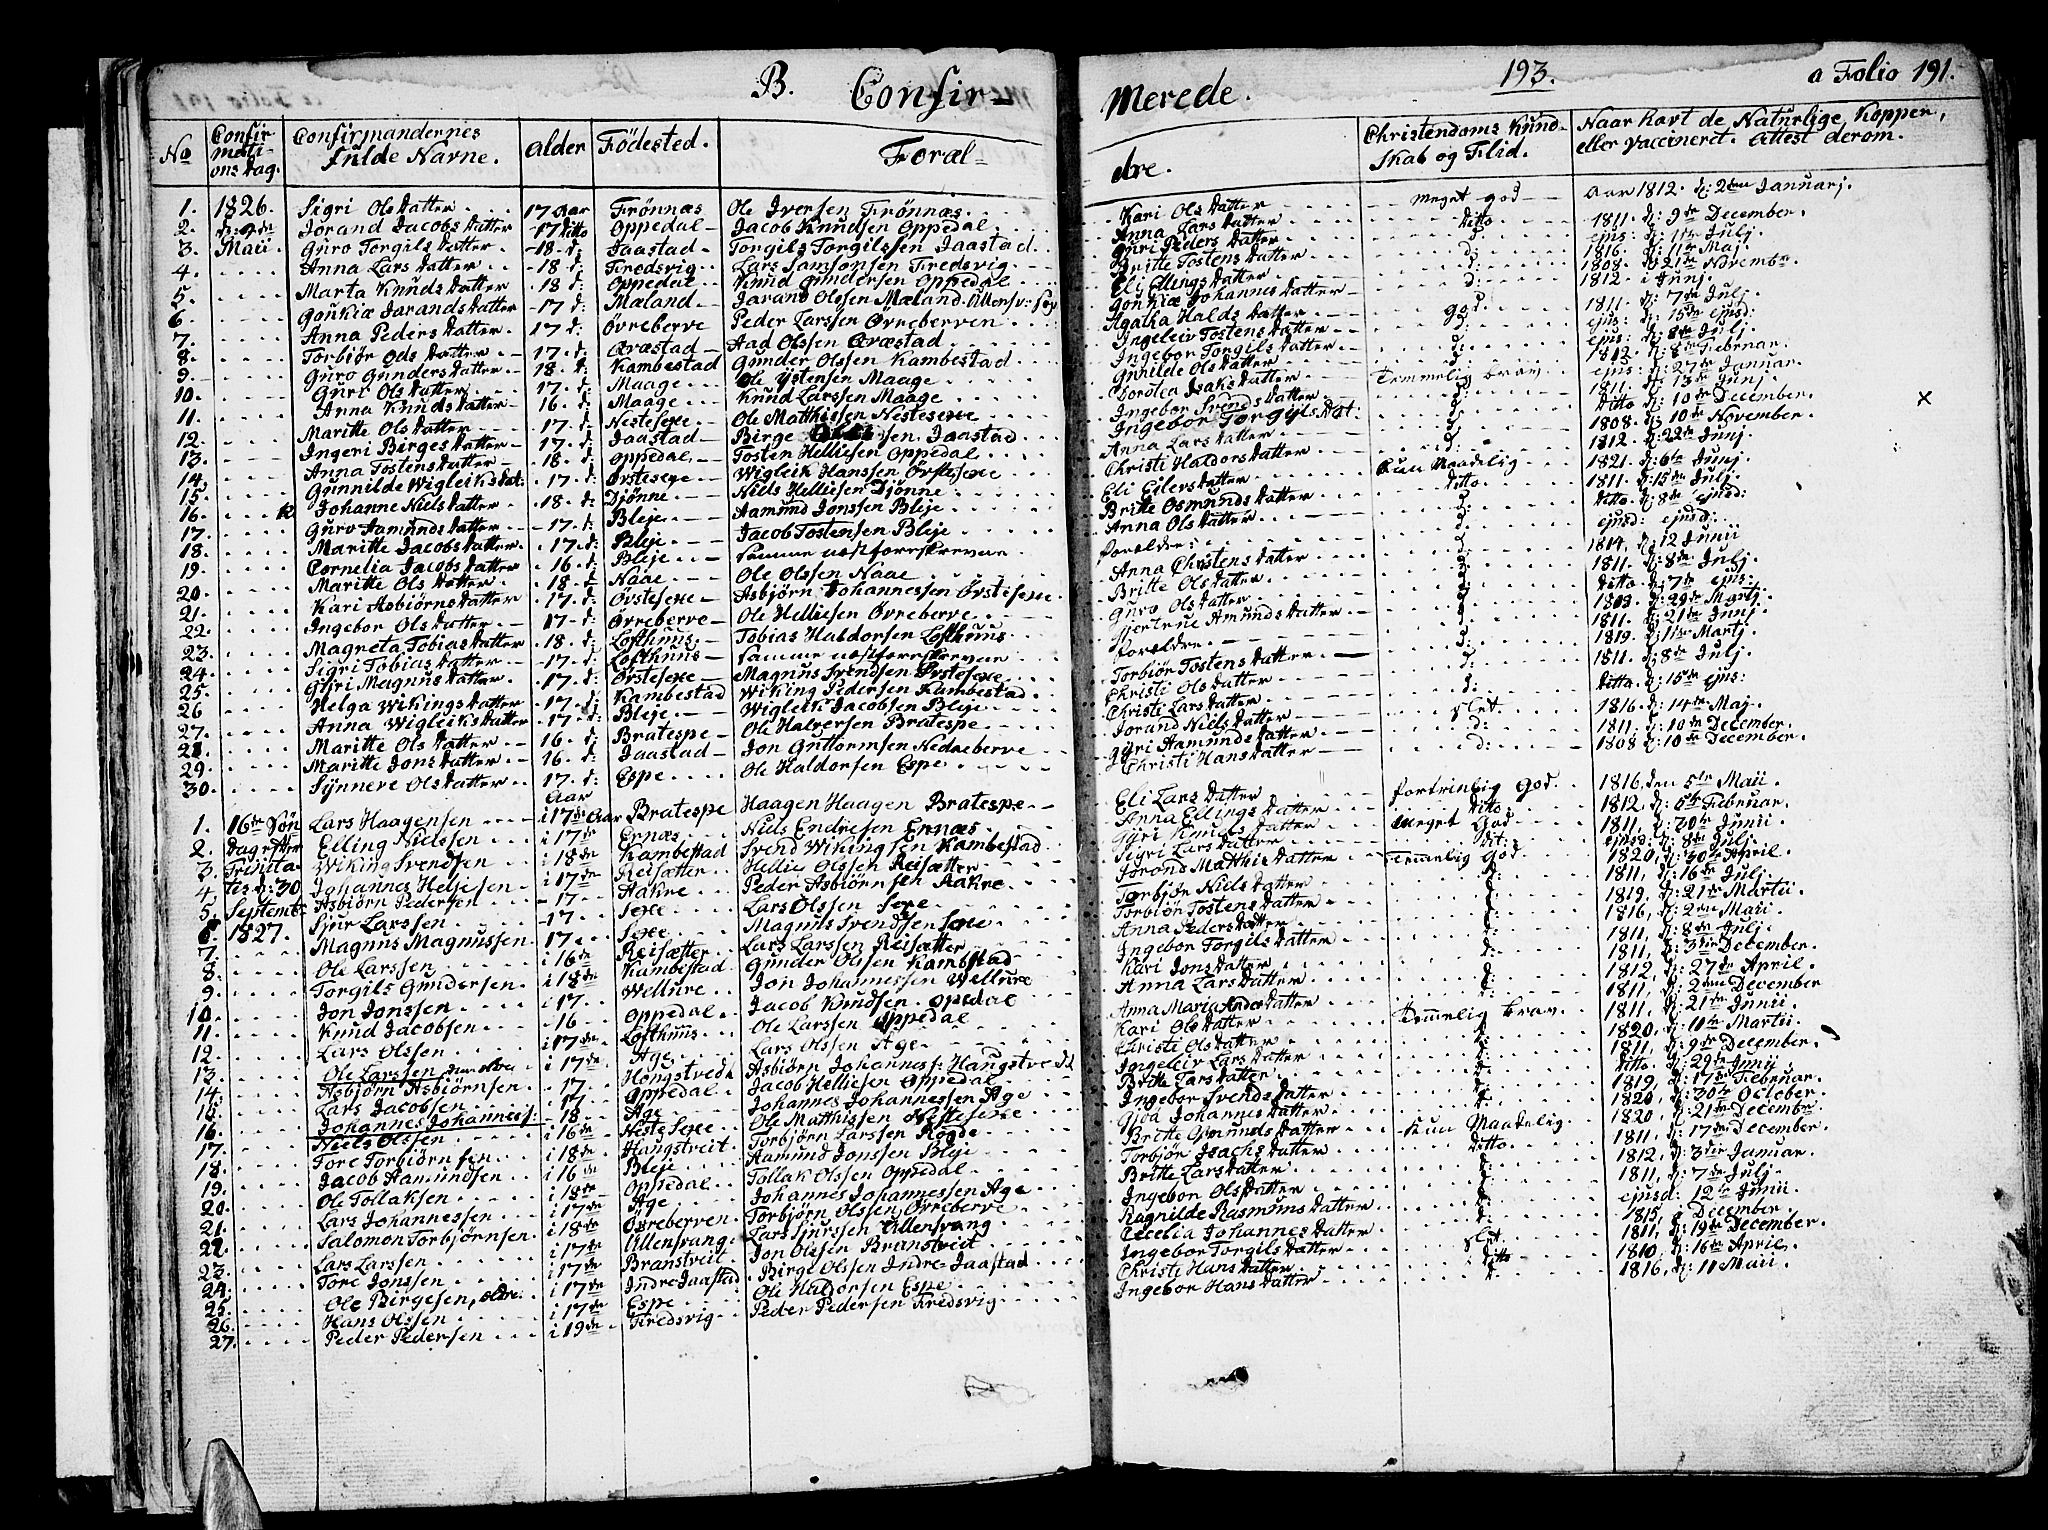 B. Confir- Merede. 193. a Folio 191.
No Confirmationsdag. Confirmandernes Fulde Navne. Alder Födested. Foræl- dre. Christendoms Kundskab og Flid. Naar havt de Naturlige Kopper, eller vaccineret. Attest derom.
1. 1826. Sigri Olsdatter 17 Aar Frönnæs Ole Iversen Frönnæs. Kari Olsdatter meget god Aar 1812. d: 2den Januarj.
2. d: 9de Jorand Jacobsdatter 17 ditto Oppedal Jacob Knudsen Oppedal Anna Larsdatter ditto 1811. d: 9de December.
3. Maii Guro Torgilsdatter 18. d: Jaastad Torgils Torgilssen Jaastad. Guri Pedersdatter d: ejus: d: 11te Julj.
4. Anna Larsdatter 18 d: Fredsvig Lars Samsonsen Fredsvig. Britte Tostensdatter d: 1816. d: 11te Maj.
5. Marta Knudsdatter 18 d: Oppedal Knud Gundersen Oppedal Eli Ellingsdatter d: 1808. d: 21de Novembr.
6. Gonkiæ Jarandsdatter 17 d: Mæland Jarand Olssen Mæland Gonkiæ Johannesdatter d: 1812. i Junj.
7. Anna Pedersdatter 17 d: Övreberve Peder Larssen Övreberven Agatha Haldsdatter god. 1811. d: 7de Julj.
8. Torbiör Ads datter 17. d: Aræstad Aad Olssen Aræstad Ingeleiv Tostensdatter d: ejus: d: 15de ejusd:
9. Guro Gundersdatter 18. d: Kambestad Gunder Olssen Kambestad Ingebor Torgilsdatter d: ejus: d: 8de Julj.
10. Guri Olsdatter 17. d: Maage Ole Ystensen Maage Gunilde Olsdatter d: 1812. d: 8de Februar.
11. Anna Knudsdatter 16. d: Maage Knud Larssen Maage Dorotea Isaksdatter Temmelig brav ejus: d: 27de Januar.
12. Maritte Olsdatter 17. d: Nestesexe Ole Matthissen Nestesexe Ingebor Svendsdatter d: 1811. d: 13de Junj.
13. Ingeri Birgesdatter 17. d: Jaastad Birge sen Jaastad Ingebor Torgilsdat: d: Ditto d: 10de December. ×
14. Anna Tostensdatter 18. d: Oppedal Tosten Helliesen Oppedal Anna Larsdatter d: 1808. d: 10de November.
15. Gunnilde Wigleiksdat: 17. d: Örstesexe Wigleik Hanssen Örstesexe Christi Haldorsdatter d: 1812. d: 22de Junj.
16. Johanne Nielsdatter 18. d: Djönne Niels Helliesen Djönne Eli Eilersdatter Kun Maadelig 1821. d: 6te Junj.
17. Guro Aamundsdatter 17. d: Bleje Aamund Jonssen Bleje Britte Osmundsdatter ditto 1811. d: 15de Julj.
18. Maritte Jacobsdatter 17. d: Bleje Jacob Tostensen Bleje Anna Olsdatter d: ditto d: 8de ejusd:
19. Cornelia Jacobsdatter 16. d: Bleje Samme næstforeskrevne forældre d: ejusd: ejusd:
20. Maritte Olsdatter 18. d: Naae Ole Olssen Naae Anna Christensdatter d: 1814. d: 12 Junii
21. Kari Asbiörnsdatter 17. d: Örstesexe Asbjörn Johannessen Örstesexe Britte Olsdatter d: 1811. d: 8de Julj.
22. Ingebor Olsdatter 17. d: Övreberve Ole Helliesen Övreberve Guro Olsdatter d: ditto d: 7de ejus:
23. Magreta Tobiasdatter 18. d: Lofthuus Tobias Haldorsen Lofthuus Gjertrue Amundsdatter d: 1803. d: 29de Martj.
24. Sigri Tobiasdatter 17. d: Lofthuus Samme næstforeskrevne forældre d: 1811. d: 21de Junj.
25. Guri Magnusdatter 17. d: Örstesexe Magnus Svendsen Örstesexe Torbiör Tostensdatter d: 1819. d: 11te Martj.
26 Helga Wikingsdatter 17. d: Kambestad Wiking Pedersen Kambestad Christi Olsdatter d: 1811. d: 8de Julj.
27. Anna Wigleiksdatter 17. d: Bleje Wigleik Jacobsen Bleje Christi Larsdatter d: ditto. d: 15de ejus:
28. Maritte Olsdatter 16. d: Bratespe Ole Halversen Bratespe Jorand Nielsdatter slet. 1816. d: 14de Maj.
29. Maritte Jonsdatter 16. d: Jaastad Jon Guttormsen Nedreberve Guri Aamundsdatter d: 1811. d: 10de December.
30. Synneve Olsdatter 17. d: Espe Ole Haldorsen Espe Christi Hansdatter d: 1808 d: 10de December.
Aar
1. 16de Sön Lars Haagensen i 17de Aar Bratespe Haagen Haagen Bratespe Eli Larsdatter fortrinlig God. 1816, den 5te Maii.
2. dag efter Elling Nielssen i 17de Ernæs Niels Endresen Ernæs Anna Ellingsdatter ditto 1812, d: 6te Februar.
3. Trinita- Wiking Svendsen i 18de Kambestad Svend Wikingsen Kambestad Guri datter Meget God 1811, d: 20de Junii.
4 tis d: 30 Johannes Heljesen i 17de Reisætter Hellie Olssen Reisætter Sigri Larsdatter dit: ejusd: d: 8de Julj.
5. Septemb: Asbiörn Pedersen 17 Aakre Peder Asbiörnsen Aakre Jorond Matthisdatter Temmelig God 1820, d: 30te April.
6 1827. Sjur Larssen 17 Sexe Lars Olssen Sexe Torbjör Nielsdatter d: 1811, d: 16de Julj.
7. Magnus Magnussen 17 Sexe Magnus Svendsen Sexe Torbiör Tostensdatter d: 1819, d: 21de Martii.
8. Ole Larssen i 16de Reisætter Lars Larssen Reisætter Anna Pedersdatter d: 1816, d: 2den Maii.
9. Torgils Gundersen i 18de Kambestad Gunder Olssen Kambstad Ingebor Torgilsdatter d: 1811, d: 8de Julj.
10. Jon Jonssen i 17 Wellure Jon Johannessen Wellure Kari Jonsdatter d: 1811, d: 3die December.
11. Knud Jacobsen 16 Oppedal Jacob Knudsen Opedal Anna Larsdatter d: 1812, d: 27de April.
12. Lars Olssen i 17de Lofthuus Ole Larssen Oppedal Anna Maria Andersdatter d: 1811, d: 2den December
13. Ole Larssen i 17de Age Lars Olssen Age Kari Olsdatter Temmelig brav. 1811, d: 21de Junii.
14. Asbjörn Asbiörnsen 17 Hongstvedt Asbiörn Johannes: Haugstvedt Christi Olsdatter d: 1820, d: 11te Martii.
15. Lars Jacobsen 17 Oppedal Jacob Helliesen Oppedal Ingeleiv Larsdatter d: 1811, d: 9de December.
16. Johannes Johanness: 18 Age Johannes Johannessen Age Britte Larsdatter d: ditto. d: 29de Junij
17. Niels Olssen i 16de Neste Sexe Ole Matthissen Nestesexe Ingebor Svendsdatter d: 1819, d: 17de Februar.
18. Tore Torbiörnsen i 18de Hangstveit Torbjörn Larssen Rogde Gjoa Johannesdatter d: 1820, d: 30te October.
19. Jacob Aamundsen i 16de Bleje Aamund Jonssen Bleje Britte Osmundsdatter Kun Maadelig 1820 d: 21de December
20. Ole Tollaksen i 18de Oppedal Tollak Olssen Oppedal Torbjör Isachsdatter Ditto 1811, d: 17de December.
21. Lars Johannessen i 17de Age Johannes Johannessen Age Britte Larsdatter d: 1812, d: 3die Januar.
22. Salomon Torbjörnsen. i 18de Övreberven Torbjörn Olssen Övreberve Ingebor Olsdatter d: 1811, d: 7de Julj.
23. Lars Larssen i 17de Ullensvang Lars Sjurssen Ullensvang Ragnilde Rasmusdatter d: ejusd: 12te Junii.
24. Tore Jonssen i 17de Branstveit Jon Olssen Branstveit Cecelia Johannesdatter d: 1815, i December
25. Ole Birgesen, ældre i 17de Indre Jaastad Birge Olssen Indre-Jaastad Ingebor Torgilsdatter slet. 1811, d: 19de December.
26. Hans Olssen i 17de Espe Ole Haldorsen Espe Christi Hansdatter ditto 1810, d: 16de April.
27. Peder Pedersen i 19de Fredsvig Peder Pedersen Fredsvig Ingebor Hansdatter d: 1816, d: 11 Maii.